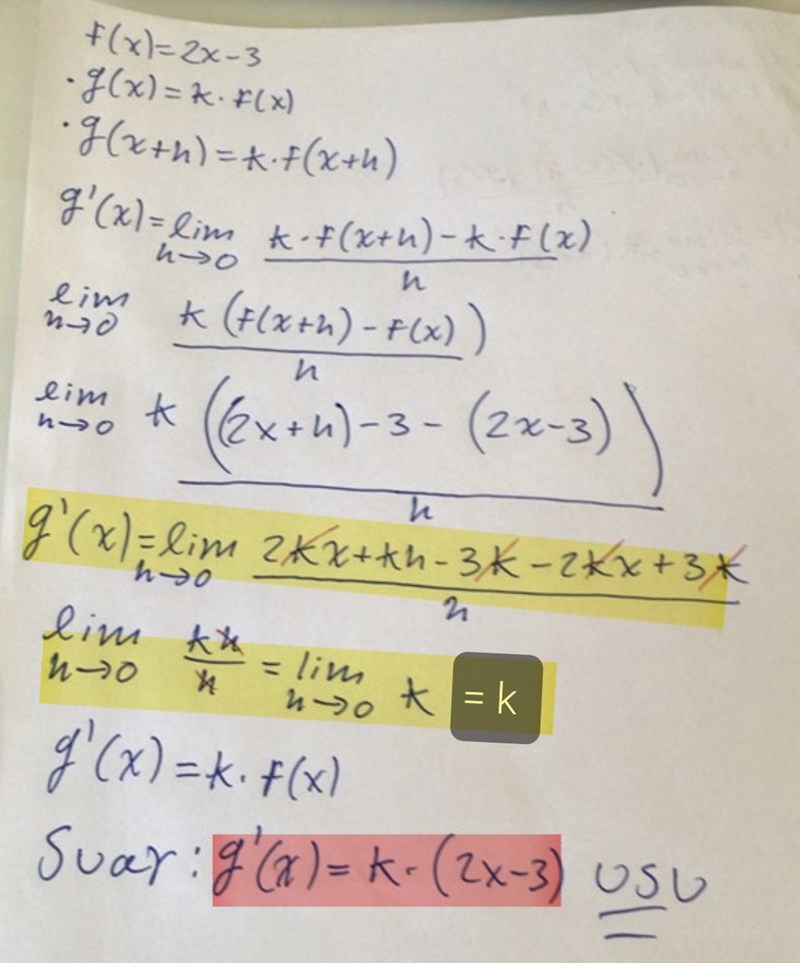 f(x)=2x-3
· g(x)=k·f(x)
· g(x+h)=k·f(x+h)
g'(x)=lim h→0 k·f(x+h)-k·f(x) / h
lim h→0 k (f(x+h)-f(x)) / h
lim h→0 k ((2x+h)-3-(2x-3)) / h
g'(x)=lim h→0 2kx+kh-3k-2kx+3k / h
lim h→0 kh / h = lim h→0 k = k
g'(x)=k·f(x)
Svar: g'(x)=k·(2x-3) VSV